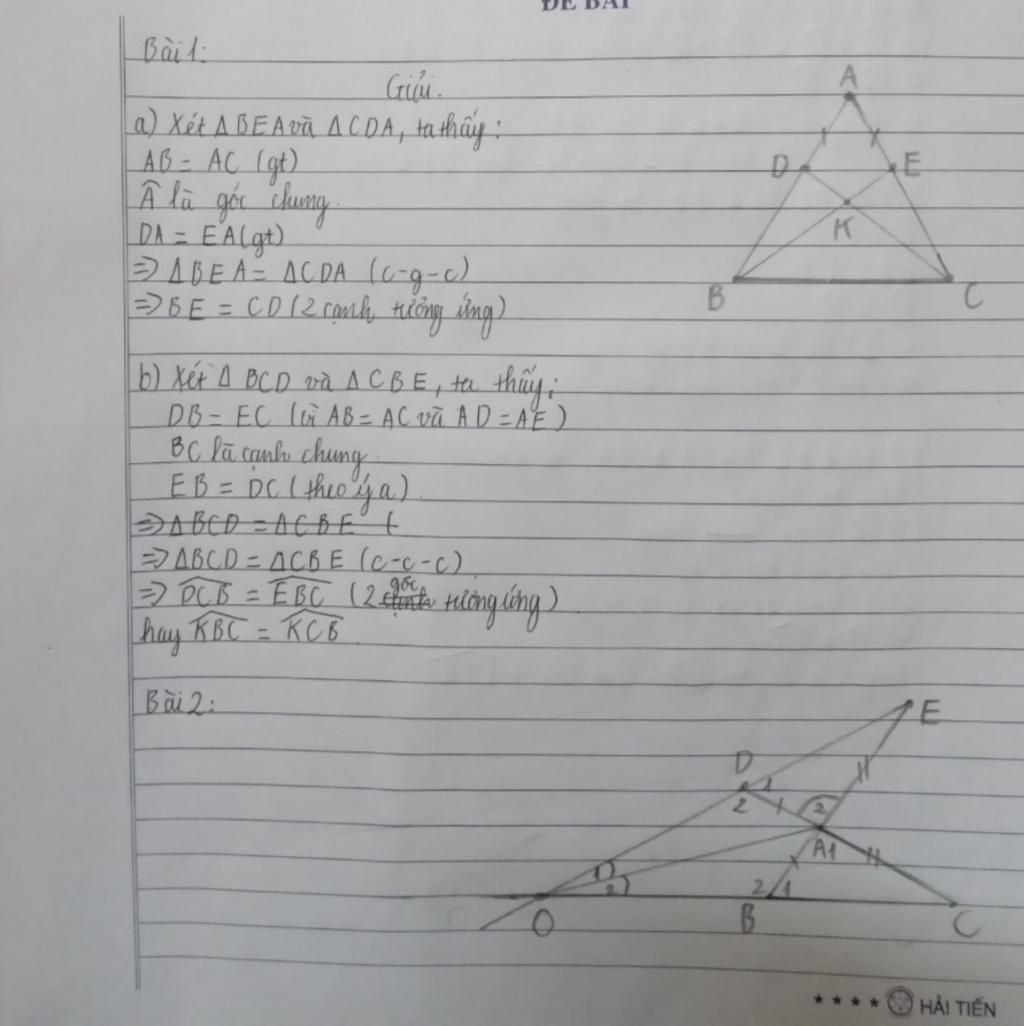 ĐỀ BÀI
Bài 1:
Giải.
a) Xét ΔBEA và ΔCDA, ta thấy:
AB = AC (gt)
Â là góc chung.
DA = EA (gt)
=> ΔBEA = ΔCDA (c-g-c)
=> BE = CD (2 cạnh tương ứng)
b) Xét Δ BCD và ΔCBE, ta thấy:
DB = EC (vì AB = AC và AD = AE)
BC là cạnh chung.
EB = DC (theo ý a)
=> ΔBCD = ΔCBE (
=> ΔBCD = ΔCBE (c-c-c)
=> DCB = EBC (2 góc tương ứng)
hay KBC = KCB
A
D
E
K
B
C
Bài 2:
E
D
1
2
2
A1
1
2
2 1
O
B
C
★★★★ HẢI TIẾN